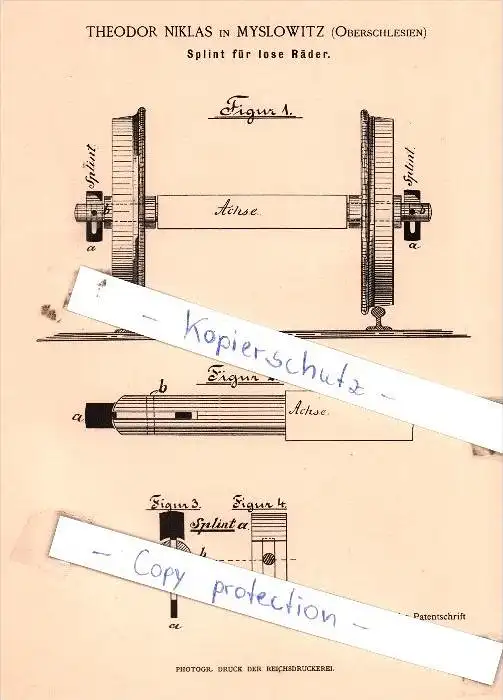 THEODOR NIKLAS IN MYSLOWITZ (OBERSCHLESIEN)
Splint für lose Räder.
Figur 1.
Splint
Splint.
b
Achse
b
a
a
– Kopierschutz –
Figur 2
b
a
Achse
Figur 3. Figur 4.
Splint a
b
– Copy protection –
a
Patentschrift
PHOTOGR. DRUCK DER REICHSDRUCKEREI.